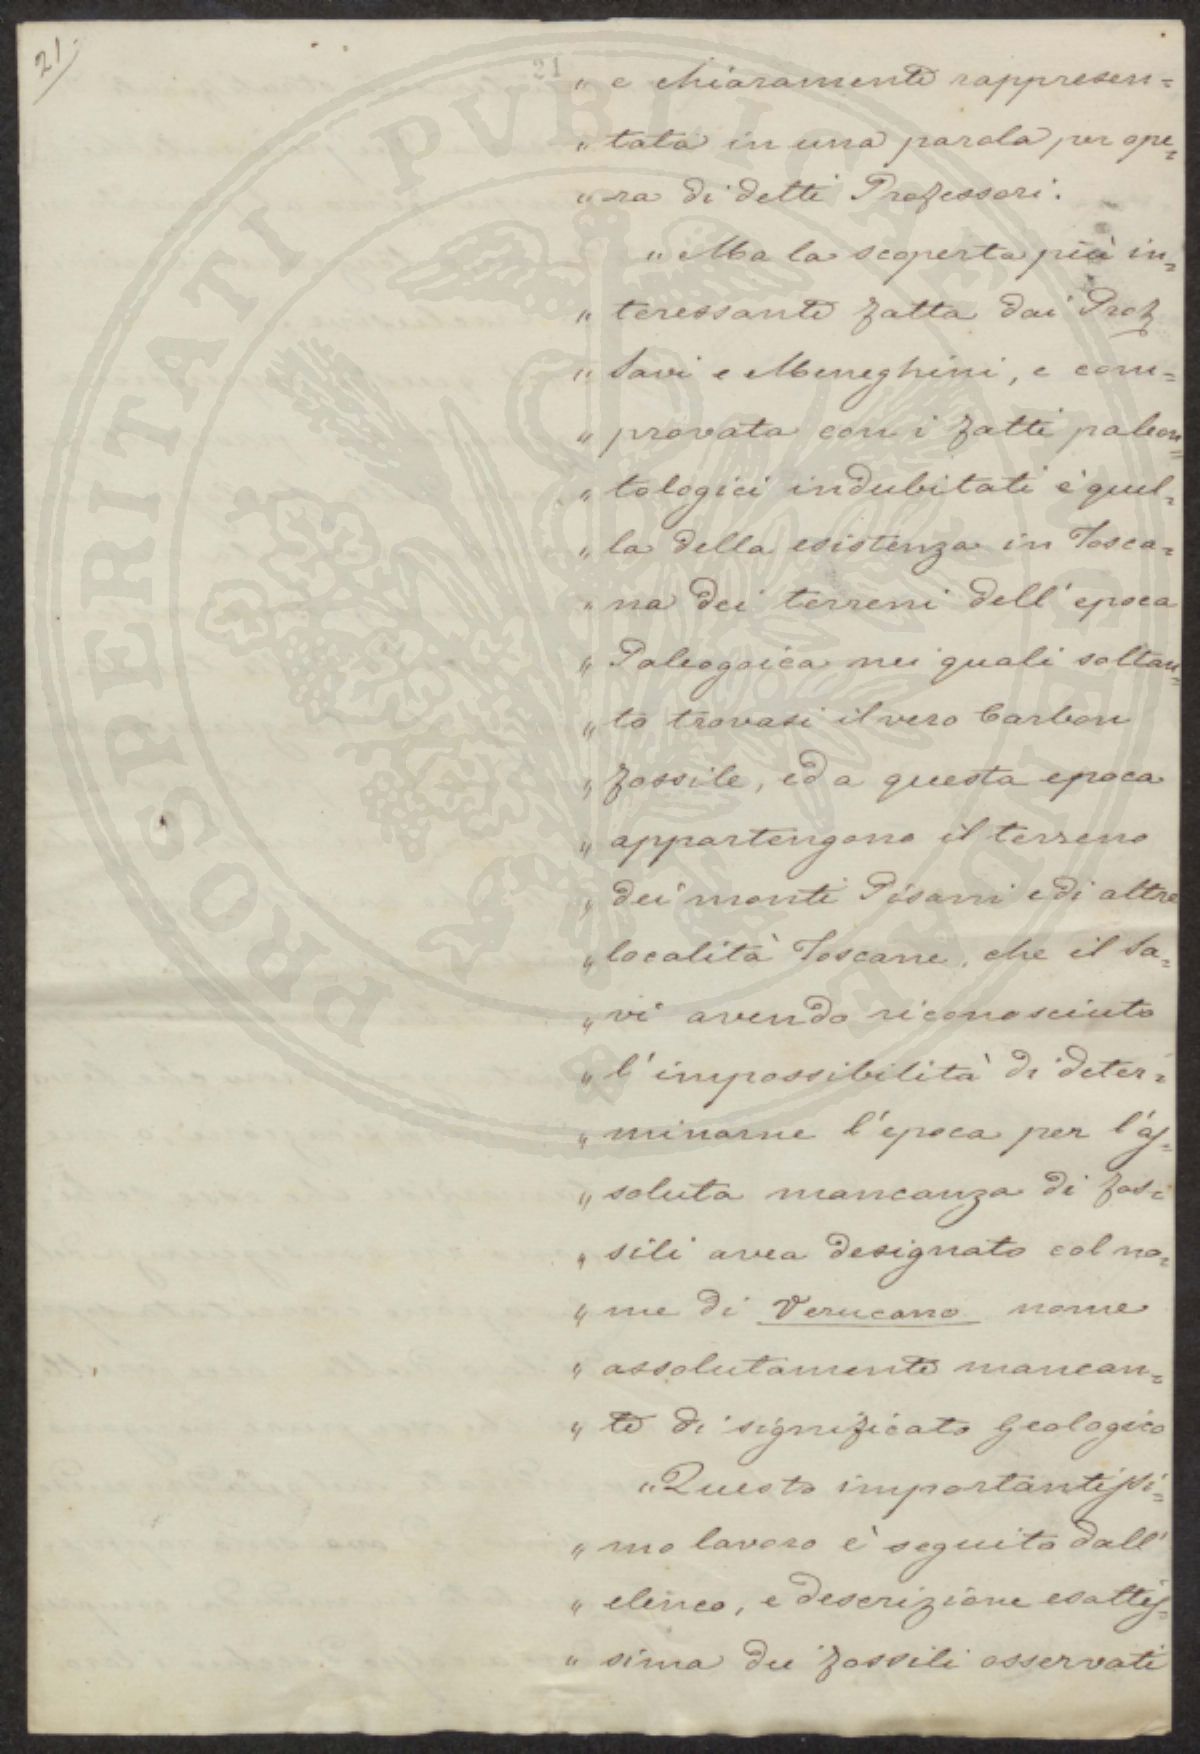 21.
21
„ e chiaramente rappresen=
„ tata in una parola per ope=
„ ra di detti Professori.
„ Ma la scoperta più in=
„ teressante fatta dai Prof
„ Savi e Meneghini, e com=
„ provata con i fatti paleon=
„ tologici indubitati è quel=
„ la della esistenza in Tosca=
„ na dei terreni dell'epoca
„ Paleozoica nei quali soltan=
„ to trovasi il vero Carbon
„ fossile, ed a questa epoca
„ appartengono il terreno
„ dei monti Pisani e di altre
„ località Toscane, che il Sa=
„ vi avendo riconosciuto
„ l'impossibilità di deter=
„ minarne l'epoca per l'as=
„ soluta mancanza di fos=
„ sili avea designato col no=
„ me di Verucano nome
„ assolutamente mancan=
„ te di significato Geologico
„ Questo importantissi=
„ mo lavoro è seguito dall'
„ elenco, e descrizione esattis=
„ sima dei fossili osservati
PROSPERITATI PVBLICAE AVGENDAE